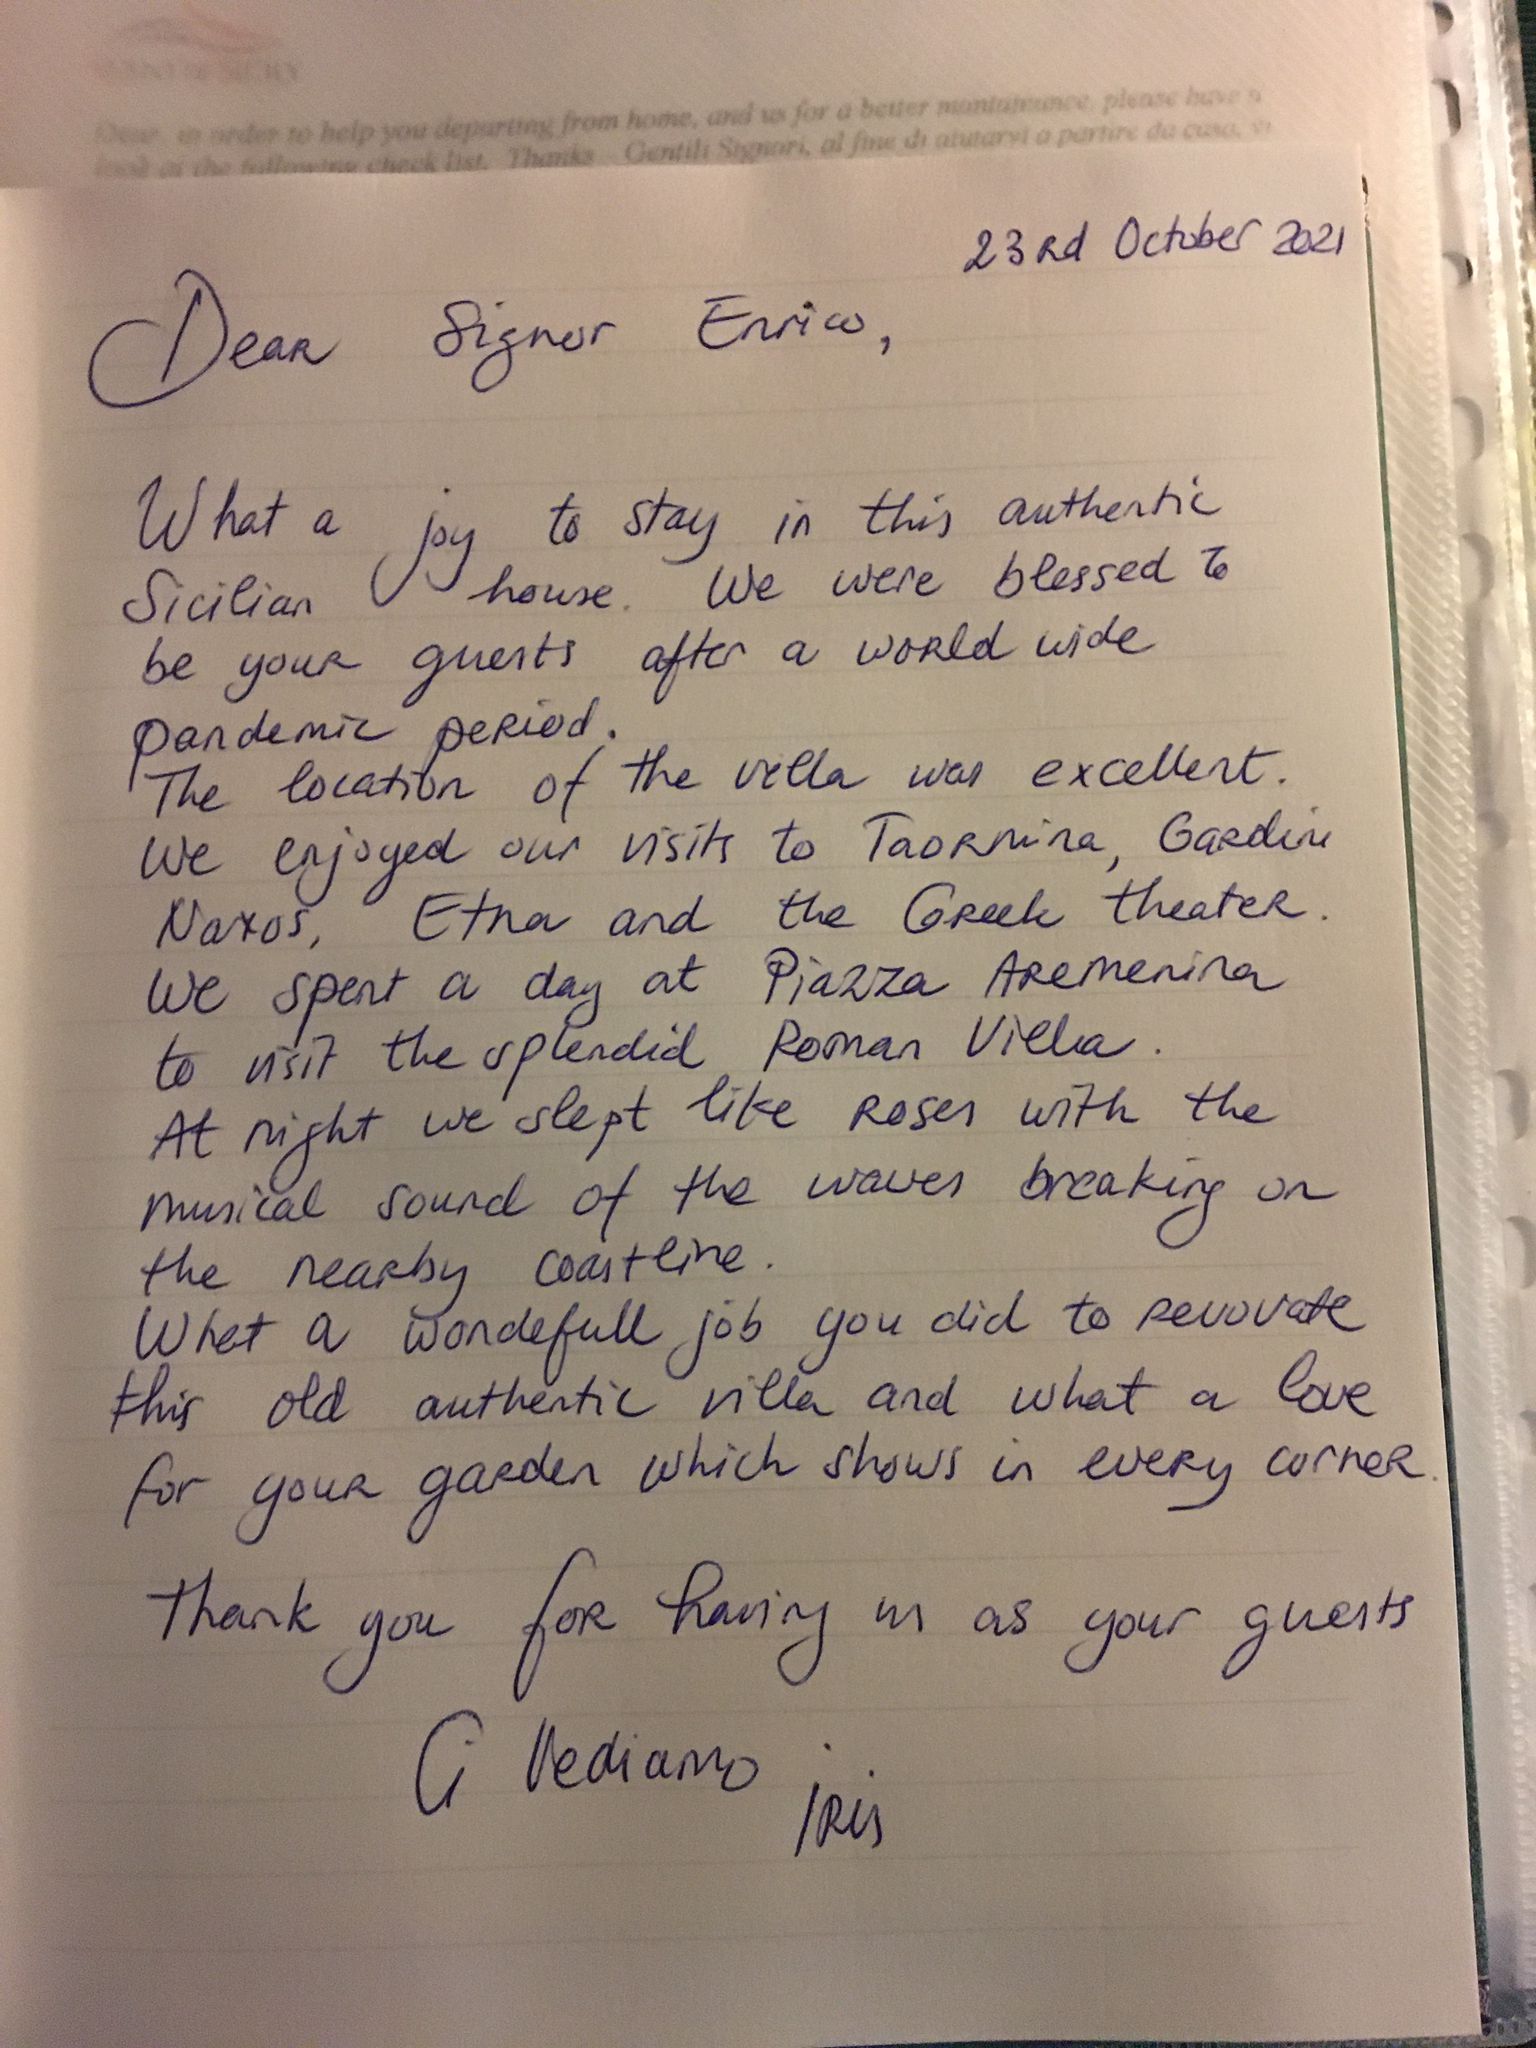 Dear, in order to help you departing from home, and us for a better mantainance, please have a
look at the following check list. Thanks - Gentili Signori, al fine di aiutarvi a partire da casa,
23rd October 2021
Dear Signor Enrico,
What a joy to stay in this authentic
Sicilian house. We were blessed to
be your guests after a world wide
pandemic period.
The location of the villa was excellent.
We enjoyed our visits to Taormina, Gardini
Naxos, Etna and the Greek theater.
We spent a day at Piazza Aremerina
to visit the splendid Roman Villa.
At night we slept like roses with the
musical sound of the waves breaking on
the nearby coastline.
What a wondefull job you did to renovate
this old authentic villa and what a love
for your garden which shows in every corner.
Thank you for having us as your guests
Ci Vediamo
Iris